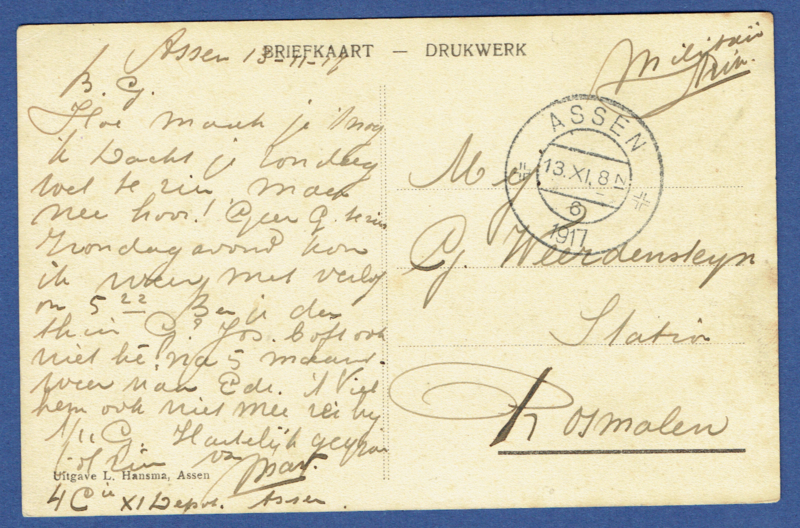 BRIEFKAART — DRUKWERK
Assen 13-11-17
B. G.
Hoe maak je 't nog
ik dacht je Zondag
wel te zien, maar
nee hoor! Geen G. te zien
Zondagavond kon
ik weer met verlof
om 5 22 Ben je den
G? Jos. ook
niet hè, na 5 maand
weer naar Ede. 't Viel
hem ook niet mee zei hij
G. Hartelijk
van
4 Cie XI Depot. Assen
Uitgave L. Hansma, Assen
Militair
ASSEN
13.XI. 8 N
6
1917
Mej
G. Weerdensteyn
Station
Rosmalen